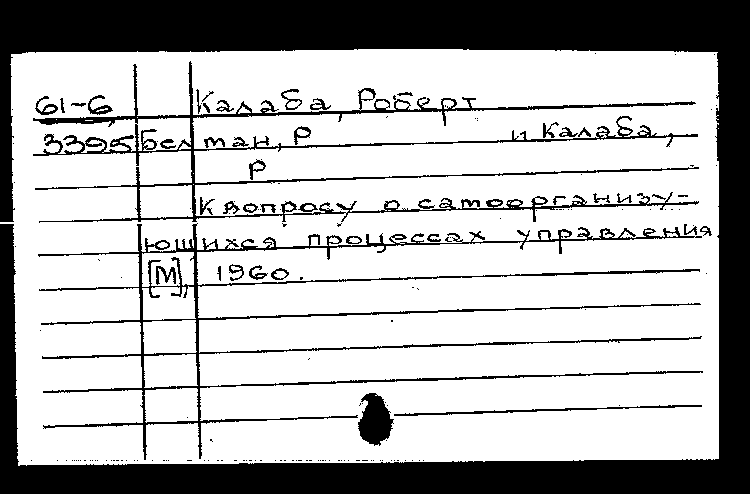 61-6 Калаба, Роберт
3395 Беллман, Р и Калаба,
Р
К вопросу о самоорганизу-
ющихся процессах управления.
[М], 1960.